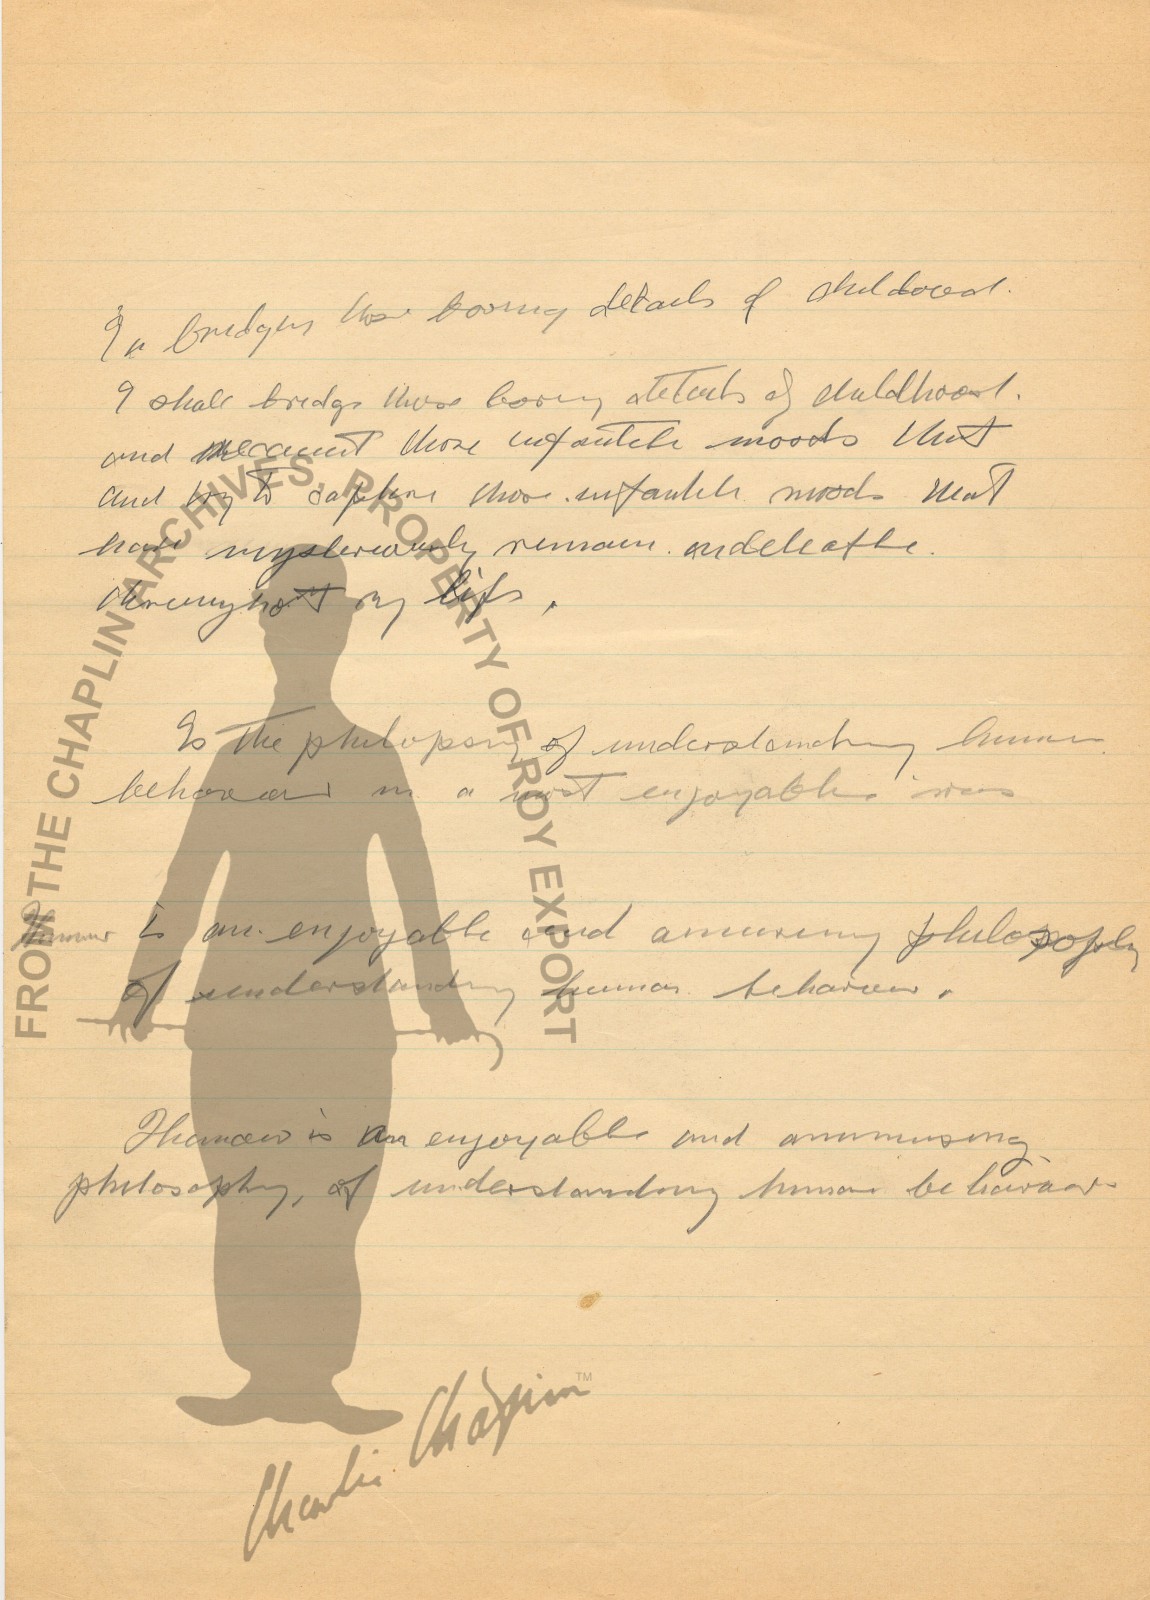 In bridging those boring details of childhood.
I shall bridge those boring details of childhood.
and recount those infantile moods that
and try to capture those infantile moods that
have mysteriously remain indeleable.
throughout my life.
Is the philosophy of understanding human
behaviour in a most enjoyable way
Humour is an enjoyable and amusing philosophy
of understanding human behaviour.
Humour is an enjoyable and ammusing
philosophy, of understanding human behaviour
FROM THE CHAPLIN ARCHIVES, PROPERTY OF ROY EXPORT
Charlie Chaplin™